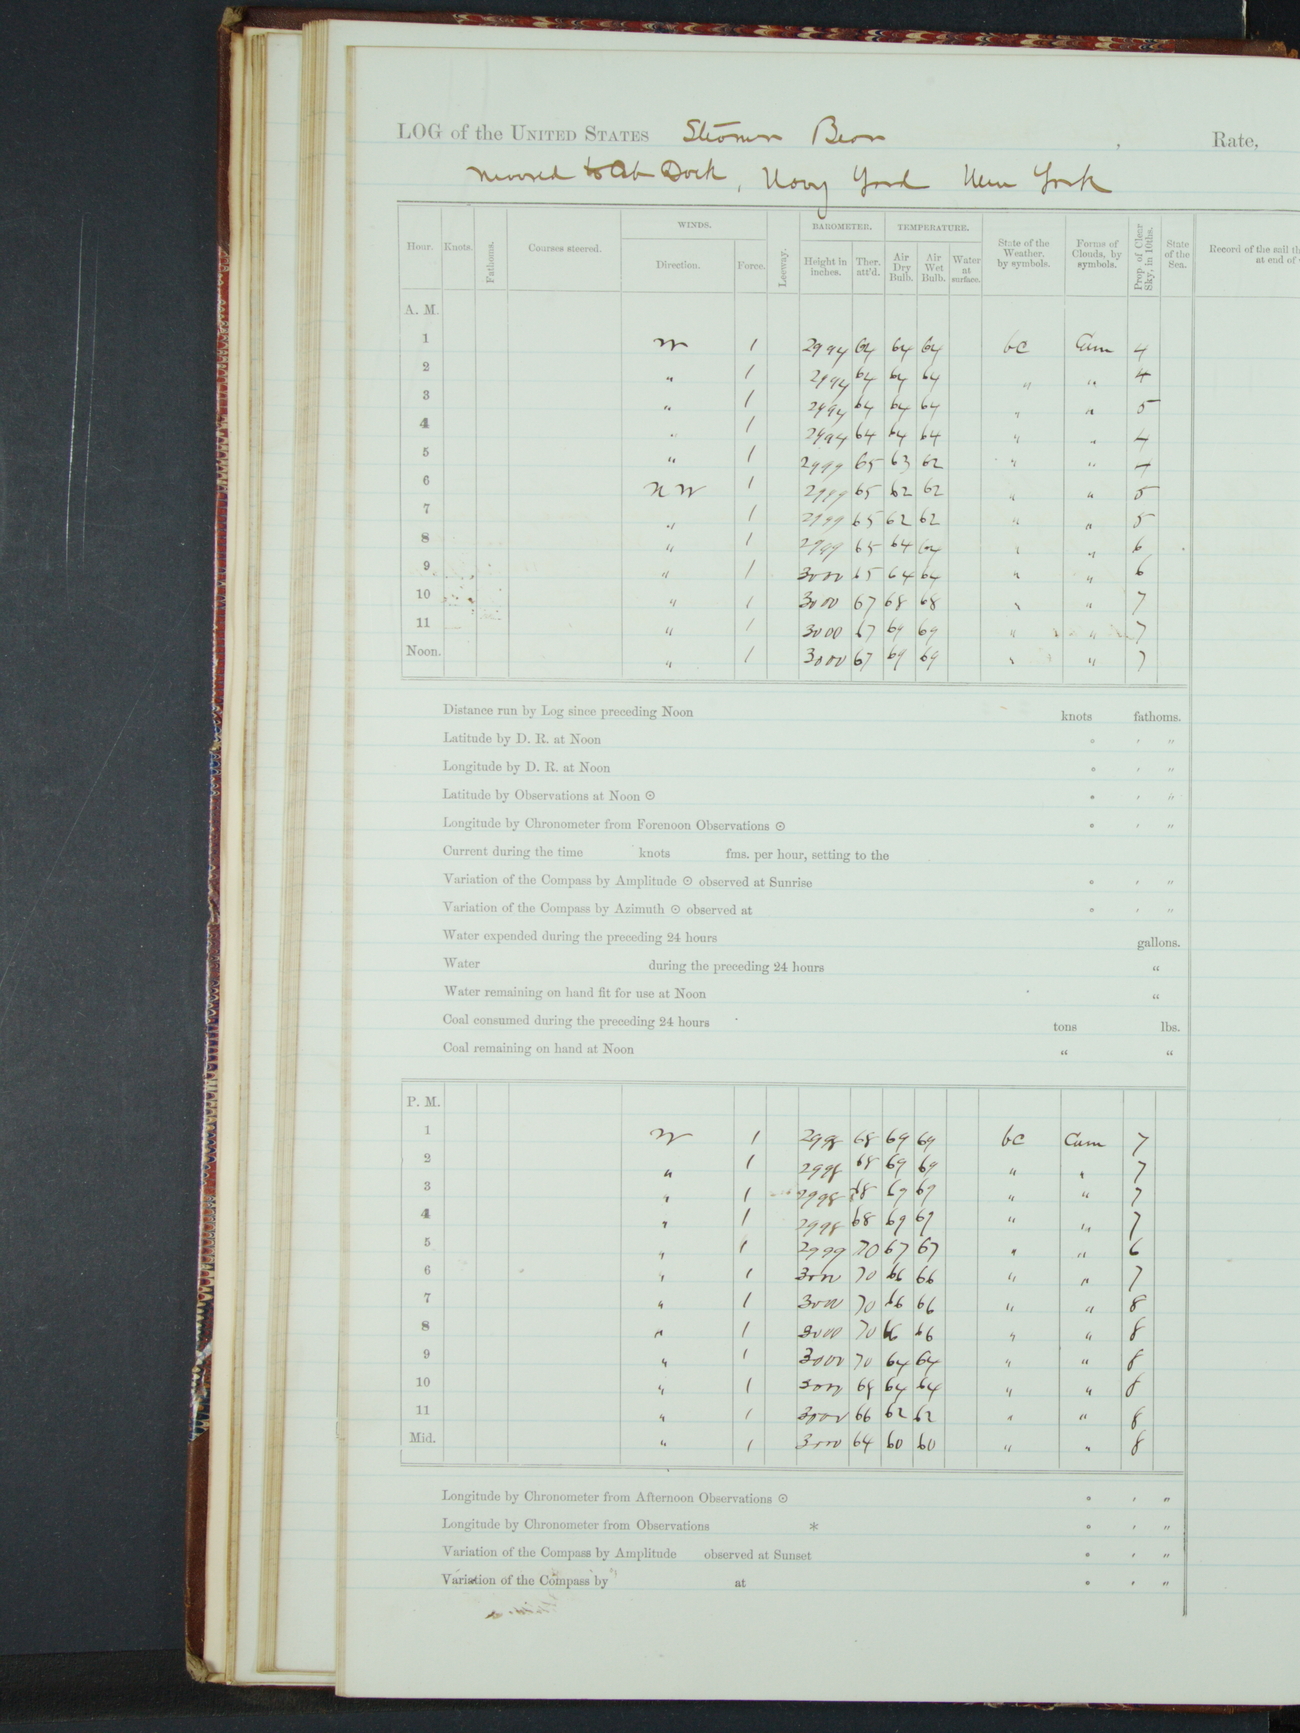 LOG of the UNITED STATES Steamer Bear, Rate,
moored to Cob Dock, Navy Yard New York
WINDS. BAROMETER. TEMPERATURE.
Hour. Knots. Fathoms. Courses steered. Direction. Force. Leeway. Height in inches. Ther. att'd. Air Dry Bulb. Air Wet Bulb. Water at surface. State of the Weather, by symbols. Forms of Clouds, by symbols. Prop. of Clear Sky, in 10ths. State of the Sea. Record of the sail th
at end of
A. M.
1 W 1 2994 64 64 64 bc Cum 4
2 " 1 2994 64 64 64 " " 4
3 " 1 2994 64 64 64 " " 5
4 " 1 2994 64 64 64 " " 4
5 " 1 2999 65 63 62 " " 4
6 NW 1 2999 65 62 62 " " 5
7 " 1 2999 65 62 62 " " 5
8 " 1 2999 65 64 64 " " 6
9 " 1 3000 65 64 64 " " 6
10 " 1 3000 67 68 68 " " 7
11 " 1 3000 67 69 69 " " 7
Noon. " 1 3000 67 69 69 " " 7
Distance run by Log since preceding Noon knots fathoms.
Latitude by D. R. at Noon ° ′ ″
Longitude by D. R. at Noon ° ′ ″
Latitude by Observations at Noon ☉ ° ′ ″
Longitude by Chronometer from Forenoon Observations ☉ ° ′ ″
Current during the time knots fms. per hour, setting to the
Variation of the Compass by Amplitude ☉ observed at Sunrise ° ′ ″
Variation of the Compass by Azimuth ☉ observed at ° ′ ″
Water expended during the preceding 24 hours gallons.
Water during the preceding 24 hours "
Water remaining on hand fit for use at Noon "
Coal consumed during the preceding 24 hours tons lbs.
Coal remaining on hand at Noon " "
P. M.
1 W 1 2998 68 69 69 bc Cum 7
2 " 1 2998 68 69 69 " " 7
3 " 1 2998 68 69 69 " " 7
4 " 1 2998 68 69 69 " " 7
5 " 1 2999 70 67 67 " " 6
6 " 1 3000 70 66 66 " " 7
7 " 1 3000 70 66 66 " " 8
8 " 1 3000 70 66 66 " " 8
9 " 1 3000 70 64 64 " " 8
10 " 1 3000 68 64 64 " " 8
11 " 1 3000 66 62 62 " " 8
Mid. " 1 3000 64 60 60 " " 8
Longitude by Chronometer from Afternoon Observations ☉ ° ′ ″
Longitude by Chronometer from Observations * ° ′ ″
Variation of the Compass by Amplitude observed at Sunset ° ′ ″
Variation of the Compass by at ° ′ ″